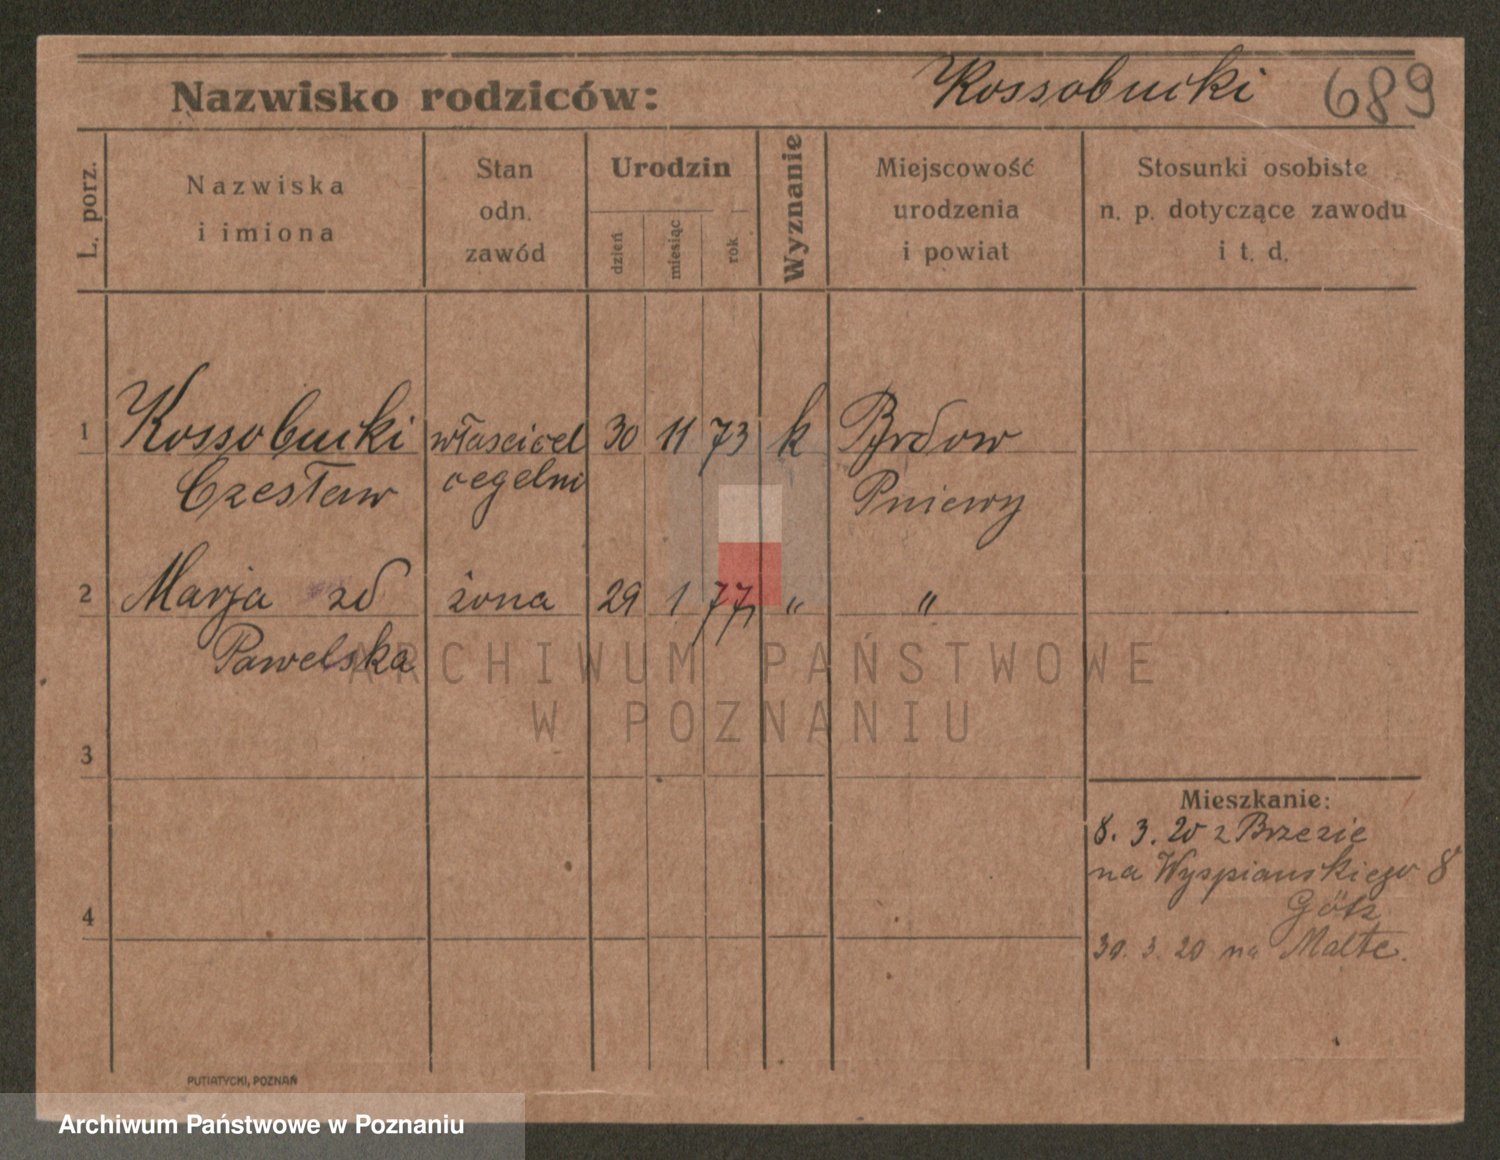 Nazwisko rodziców: Kossobucki 689
L. porz.
Nazwiska
i imiona
Stan
odn.
zawód
Urodzin
dzień
miesiąc
rok
Wyznanie
Miejscowość
urodzenia
i powiat
Stosunki osobiste
n. p. dotyczące zawodu
i t. d.
1 Kossobucki właściciel 30 11 73 k
Czesław cegelni Pniewy
2 Marja zd żona 29 1 77 " "
Pawelska
ARCHIWUM PAŃSTWOWE
W POZNANIU
3
Mieszkanie:
8. 3. 20 z Brzezie
na Wyspianskiego 8
4
30. 3. 20 na Malte.
PUTIATYCKI, POZNAŃ
Archiwum Państwowe w Poznaniu